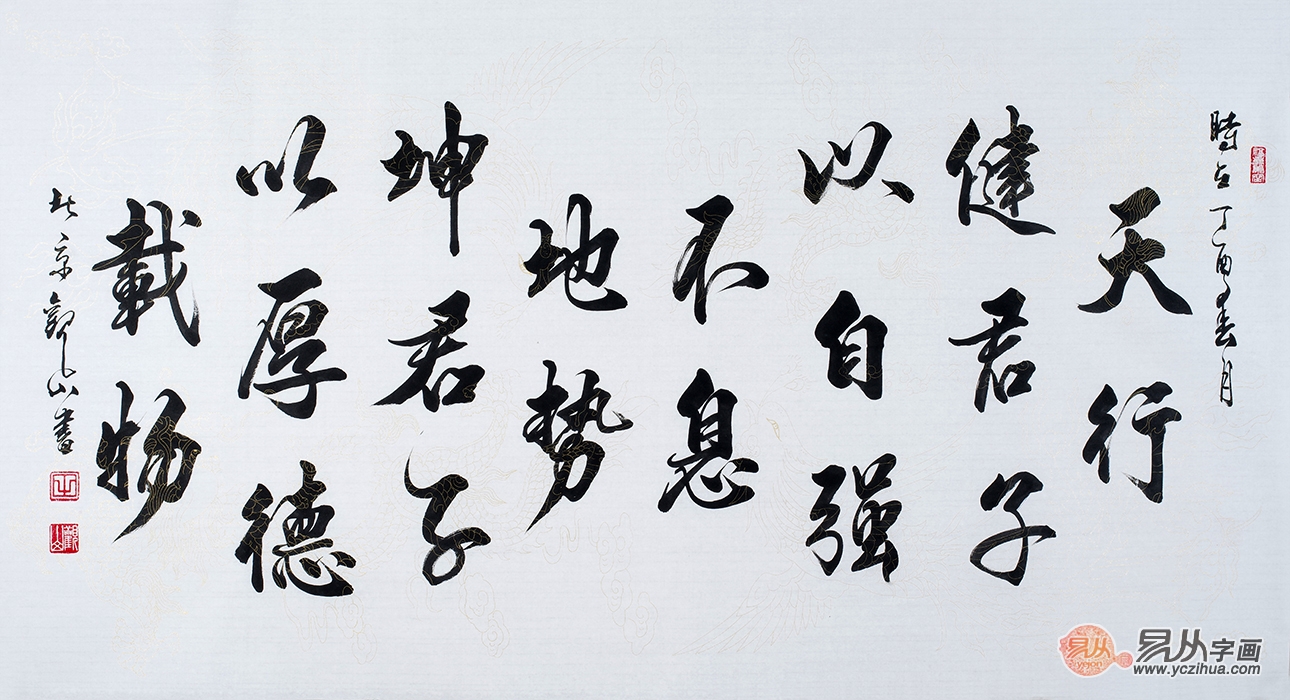 時在丁酉春月
天行
健君子
以自强
不息
地势
坤君子
以厚德
載物
北京觀山書
觀山
易从
yejon
易从字画
www.yczihua.com